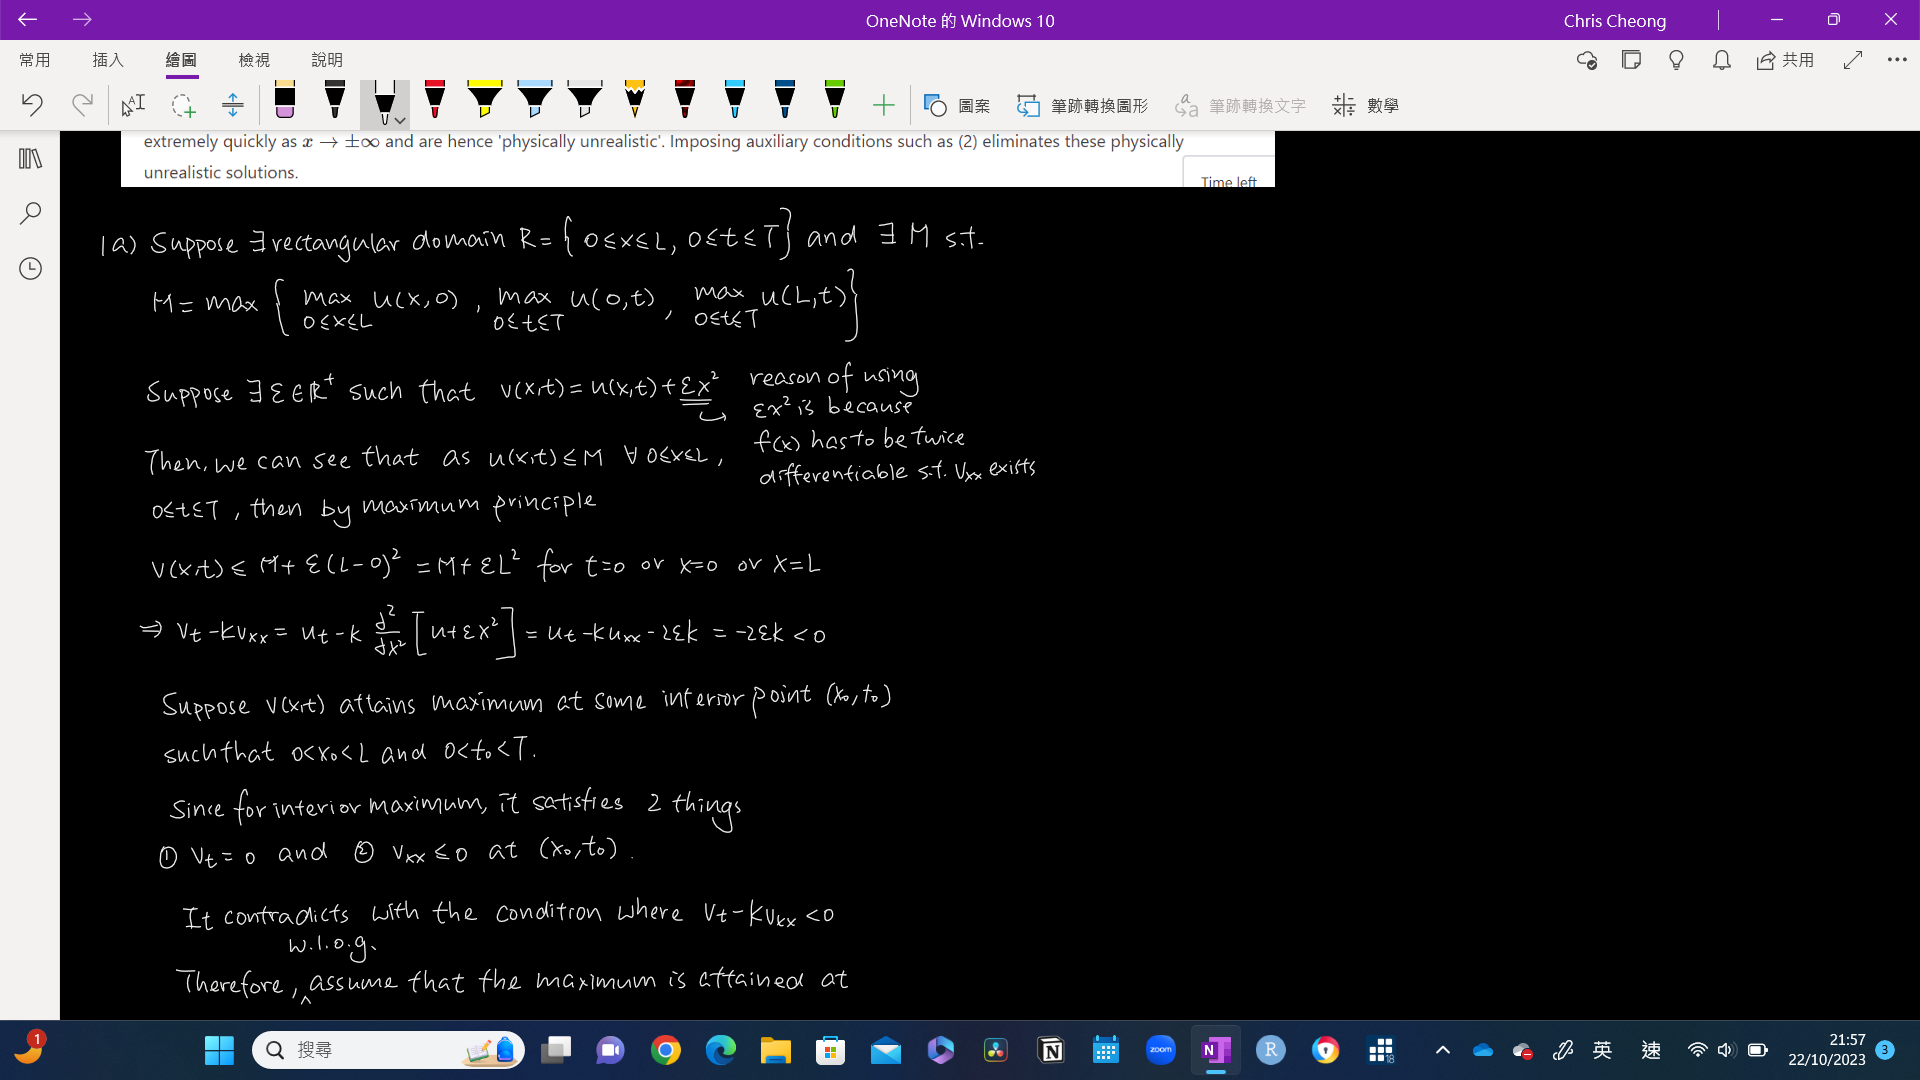 OneNote 的 Windows 10
Chris Cheong
常用 插入 繪圖 檢視 說明
共用
圖案 筆跡轉換圖形 筆跡轉換文字 數學
extremely quickly as x → ±∞ and are hence 'physically unrealistic'. Imposing auxiliary conditions such as (2) eliminates these physically
unrealistic solutions.
Time left
1a) Suppose ∃ rectangular domain R = { 0≤x≤L, 0≤t≤T } and ∃ M s.t.
M = max { max u(x,0) , max u(0,t) , max u(L,t) }
0≤x≤L 0≤t≤T 0≤t≤T
Suppose ∃ ε ∈ ℝ⁺ such that v(x,t) = u(x,t) + εx²
reason of using
εx² is because
f(x) has to be twice
differentiable s.t. Vxx exists
Then, we can see that as u(x,t) ≤ M ∀ 0≤x≤L,
0≤t≤T, then by maximum principle
v(x,t) ≤ M + ε(L-0)² = M + εL² for t=0 or x=0 or x=L
⇒ Vt - KVxx = ut - k d²/dx² [u+εx²] = ut - kuxx - 2εk = -2εk < 0
Suppose v(x,t) attains maximum at some interior point (x₀,t₀)
such that 0<x₀<L and 0<t₀<T.
Since for interior maximum, it satisfies 2 things
① Vt = 0 and ② Vxx ≤ 0 at (x₀,t₀).
It contradicts with the condition where Vt - KVxx < 0
w.l.o.g.
Therefore, ^ assume that the maximum is attained at
1
搜尋
zoom
N
R
18
英
速
21:57
22/10/2023
3